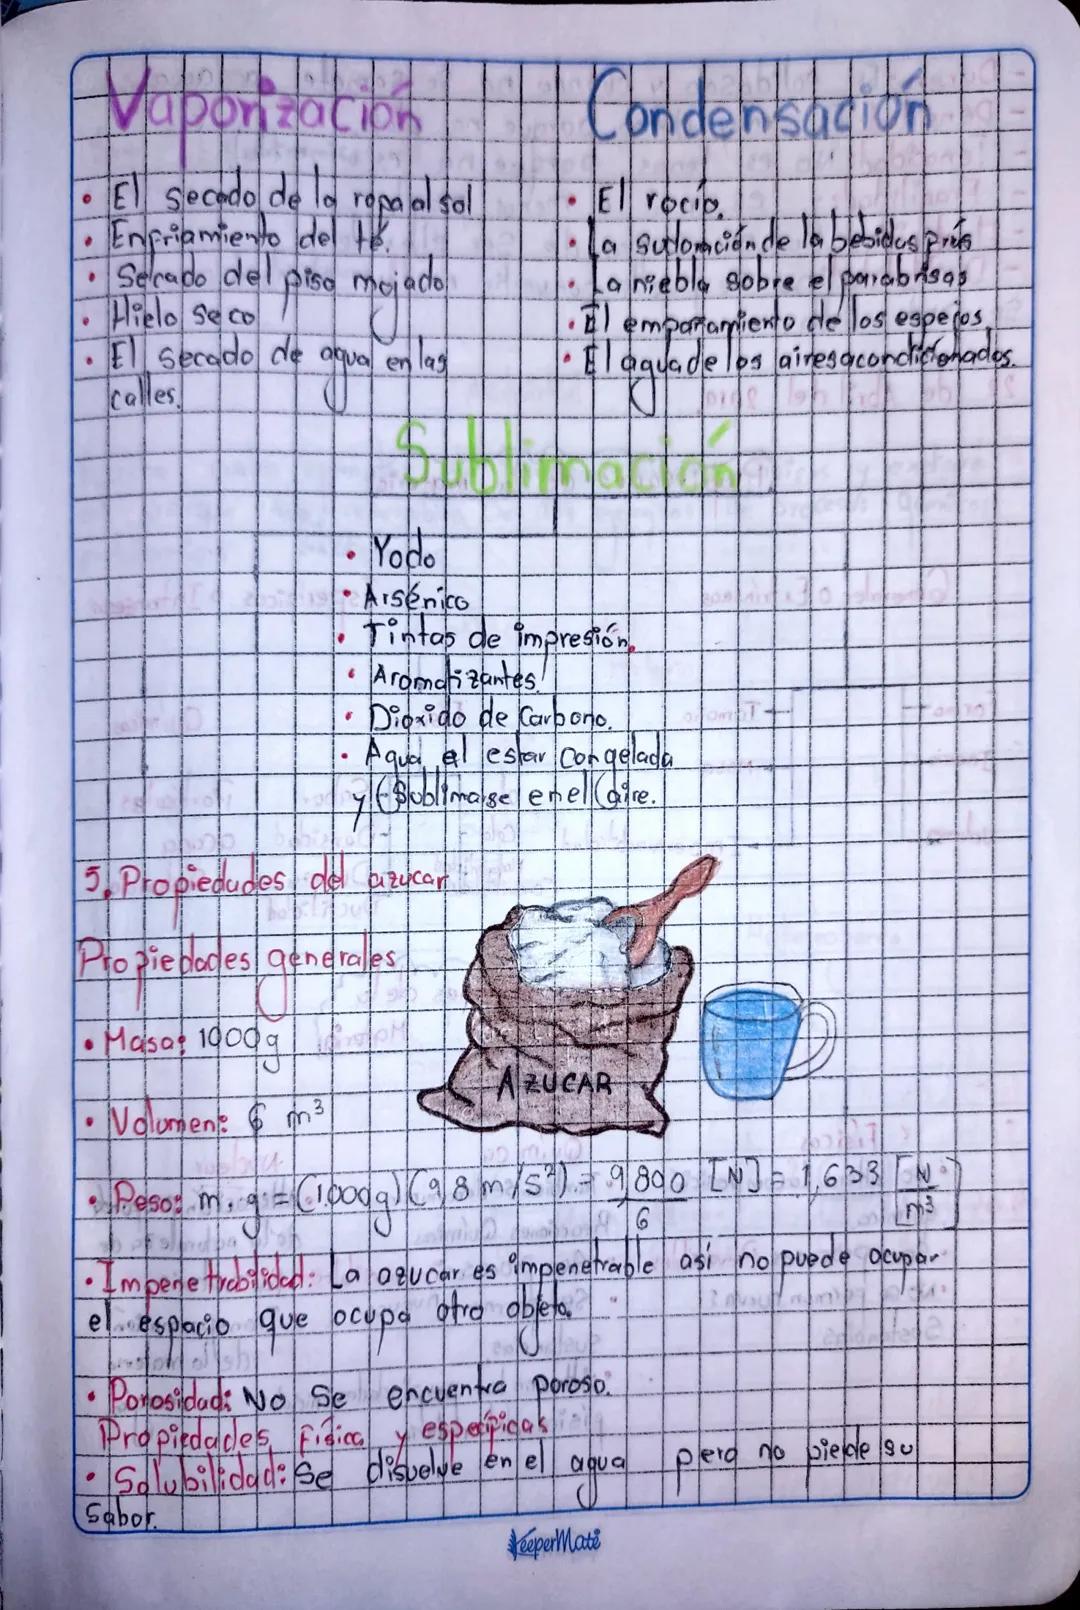 Vaporización
• El secado de la ropa al sol
• Enfriamiento del té.
• Secado del piso mojado
• Hielo seco
• El secado de agua en las
calles.
Condensación
• El rocío.
• La sudoración de la bebidas frías
• La niebla sobre el parabrisas
• El empañamiento de los espejos
• El agua de los aires acondicionados.
Sublimación
• Yodo
• Arsénico
• Tintas de impresión.
• Aromatizantes
• Dioxido de Carbono.
• Agua al estar congelada
y sublimarse en el aire.
5. Propiedades del azucar
Propiedades generales
• Masa: 1000g
AZUCAR
• Volumen: 6 m³
• Peso: m.g = (1.000g)(9,8 m/s²) = 9,800/6 [N] = 1,633 [N/m³]
• Impenetrabilidad: La azucar es impenetrable así no puede ocupar
el espacio que ocupa otro objeto.
• Porosidad: No se encuentra poroso.
Propiedades Física y específicas
• Solubilidad: Se disuelve en el agua pero no pierde su
Sabor.
KeeperMate